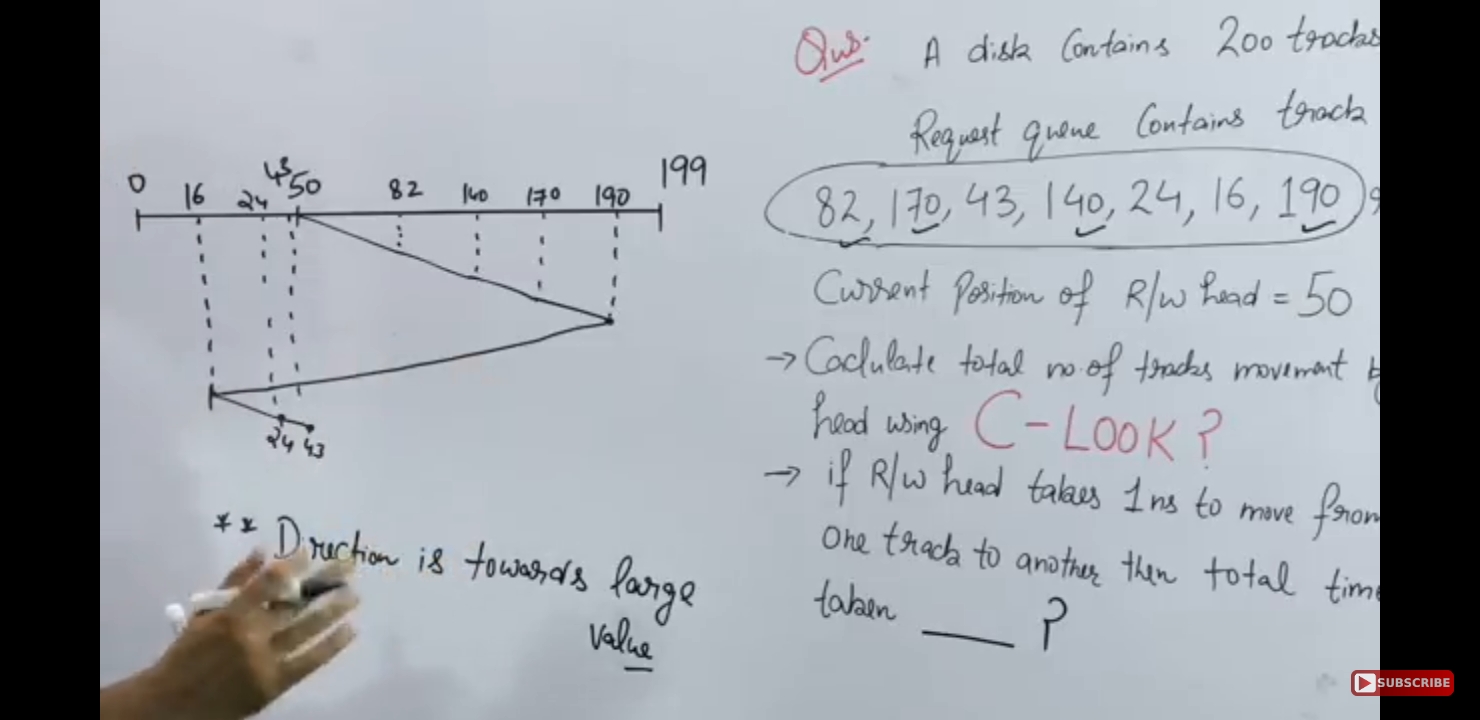 0 16 24 43 50 82 140 170 190 199
24 43
** Direction is towards large
value
Qus. A disk Contains 200 tracks
Request queue Contains track
82, 170, 43, 140, 24, 16, 190
Current Position of R/W head = 50
→ Caclulate total no. of tracks movement
head using C-LOOK?
→ if R/W head takes 1ns to move from
One track to another then total time
taken ___ ?
SUBSCRIBE